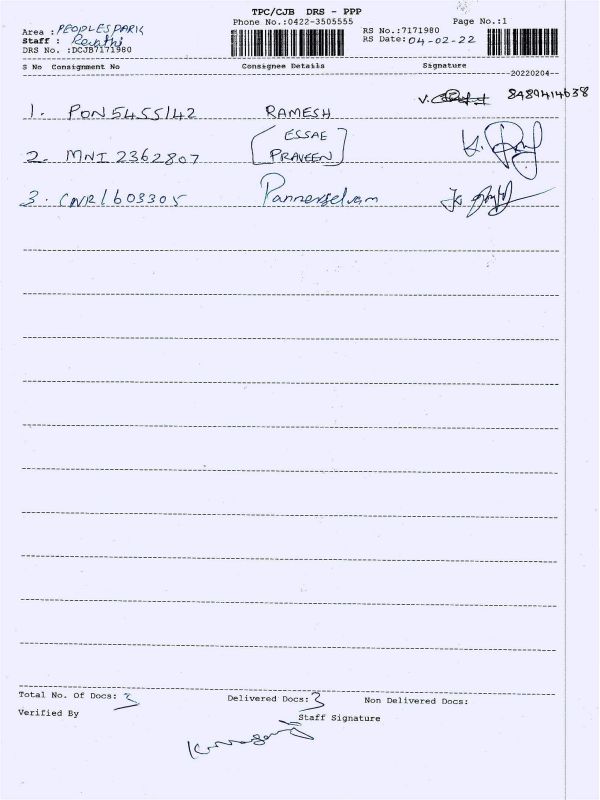 TPC/CJB DRS - PPP
Phone No.:0422-3505555 Page No.:1
Area : PEOPLES PARK RS No.:7171980
Staff : Revathi RS Date: 04-02-22
DRS No. :DCJB7171980
S No Consignment No Consignee Details Signature
20220204
8489414638
1. PON5455142 RAMESH
ESSAE
2. MNI 2362807 PRAVEEN
3. CNR1603305 Pannerselvam
Total No. Of Docs: 3 Delivered Docs: 3 Non Delivered Docs:
Verified By Staff Signature